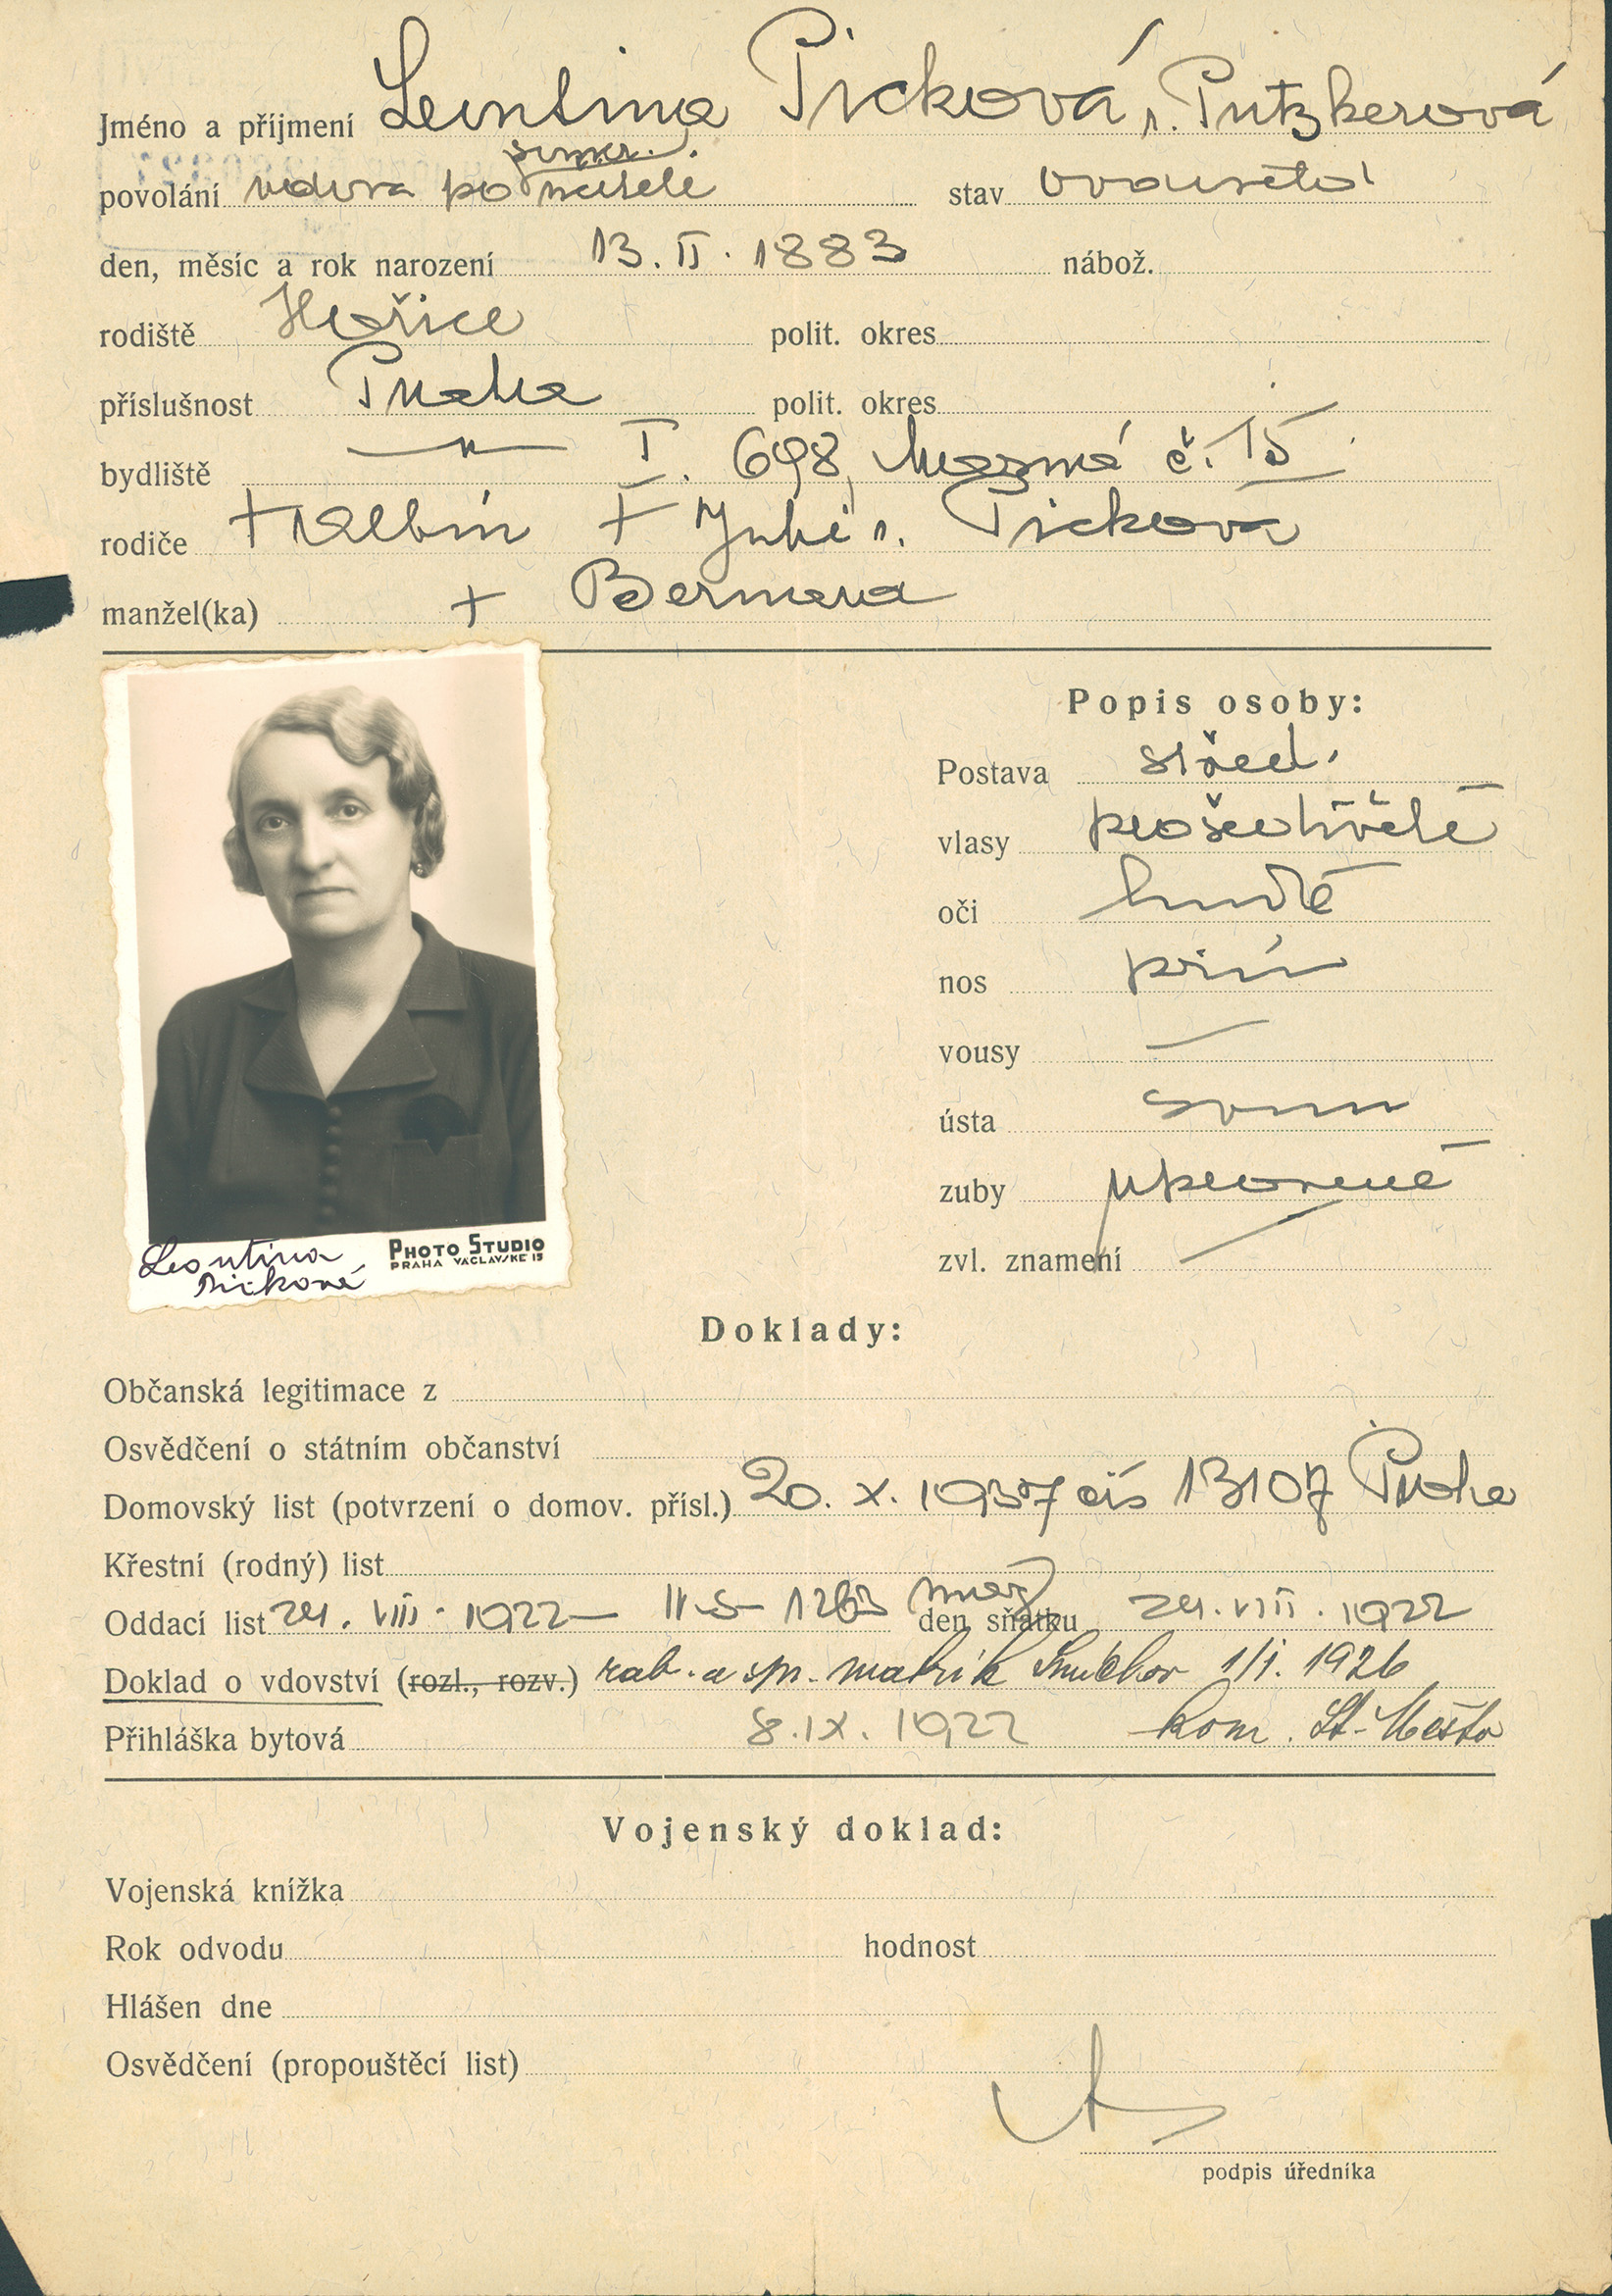 Jméno a příjmení Leontina Picková r. Putzkerová
soukr.
povolání vdova po stav ovdovělá
den, měsíc a rok narození 13. II. 1883 nábož.
rodiště Hořice polit. okres
příslušnost Praha polit. okres
bydliště —"— I. 698, Masná č. 15
rodiče + Albín + Julie r. Picková
manžel(ka) +
Popis osoby:
Postava střed.
vlasy prošedivělé
oči hnědé
nos přím
vousy —
ústa soum
zuby upravené
zvl. znamení —
Leontina
Picková
PHOTO STUDIO
PRAHA VÁCLAVSKÉ 15
Doklady:
Občanská legitimace z
Osvědčení o státním občanství
Domovský list (potvrzení o domov. přísl.) 20. X. 1937 čís 13107 Praha
Křestní (rodný) list
Oddací list 24. VIII. 1922 – II-S- 1263 den sňatku 24. VIII. 1922
Doklad o vdovství (rozl., rozv.) rab. a spr. matrik Smíchov 1/I. 1926
Přihláška bytová 8. IX. 1922 kom. St. Město
Vojenský doklad:
Vojenská knížka
Rok odvodu hodnost
Hlášen dne
Osvědčení (propouštěcí list)
podpis úředníka